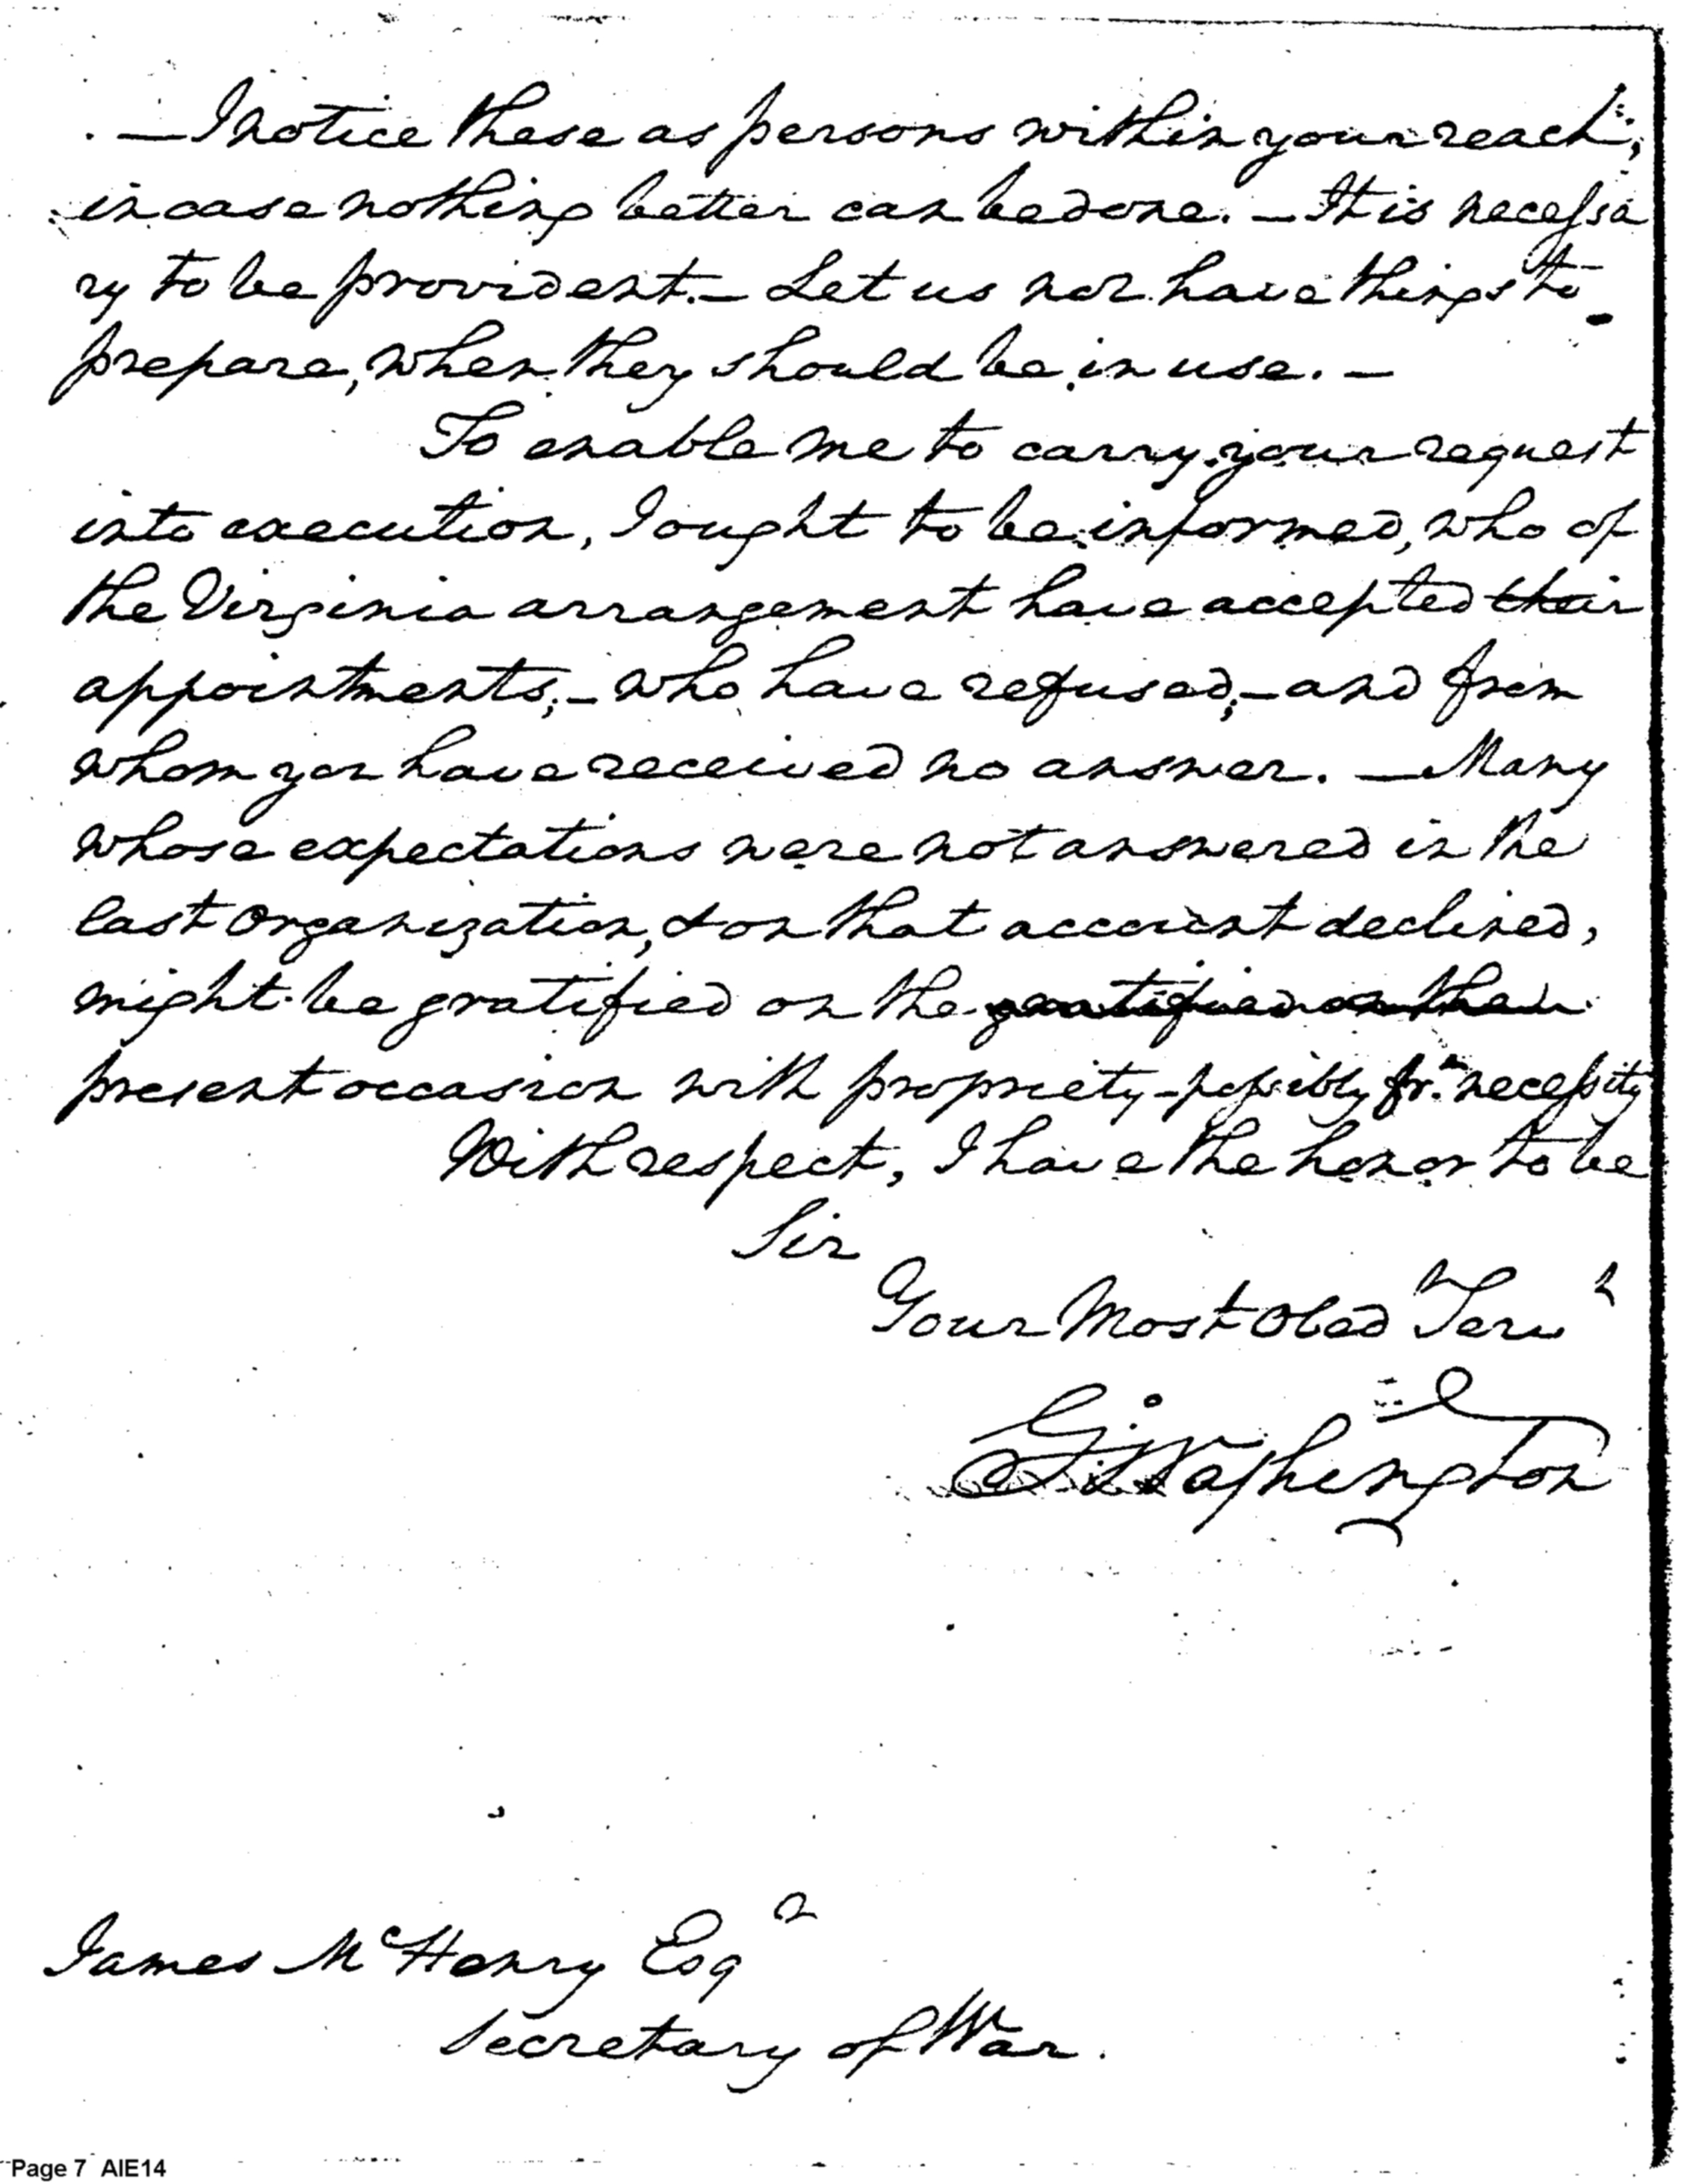 — I notice these as persons within your reach,
in case nothing better can be done. — It is necessa
ry to be provident. — Let us not have things to
prepare, when they should be in use. —
To enable me to carry your request
into execution, I ought to be informed, who of
the Virginia arrangement have accepted their
appointments; — who have refused; — and from
whom you have received no answer. — Many
whose expectations were not answered in the
last Organization, & on that account declined,
might be gratified on the gratified on the
present occasion with propriety - possibly frm. necessity
With respect, I have the honor to be
Sir
Your Most Obed Servt
Go: Washington
James McHenry Esqr
Secretary of War.
Page 7 AIE14